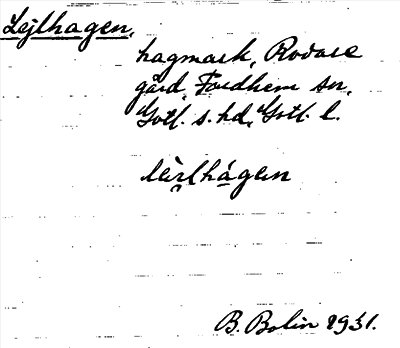 Lejlhagen,
hagmark, Rovare
gård, Fardhem sn,
Gotl. s. hd, Gotl. l.
B. Bolin 1931.